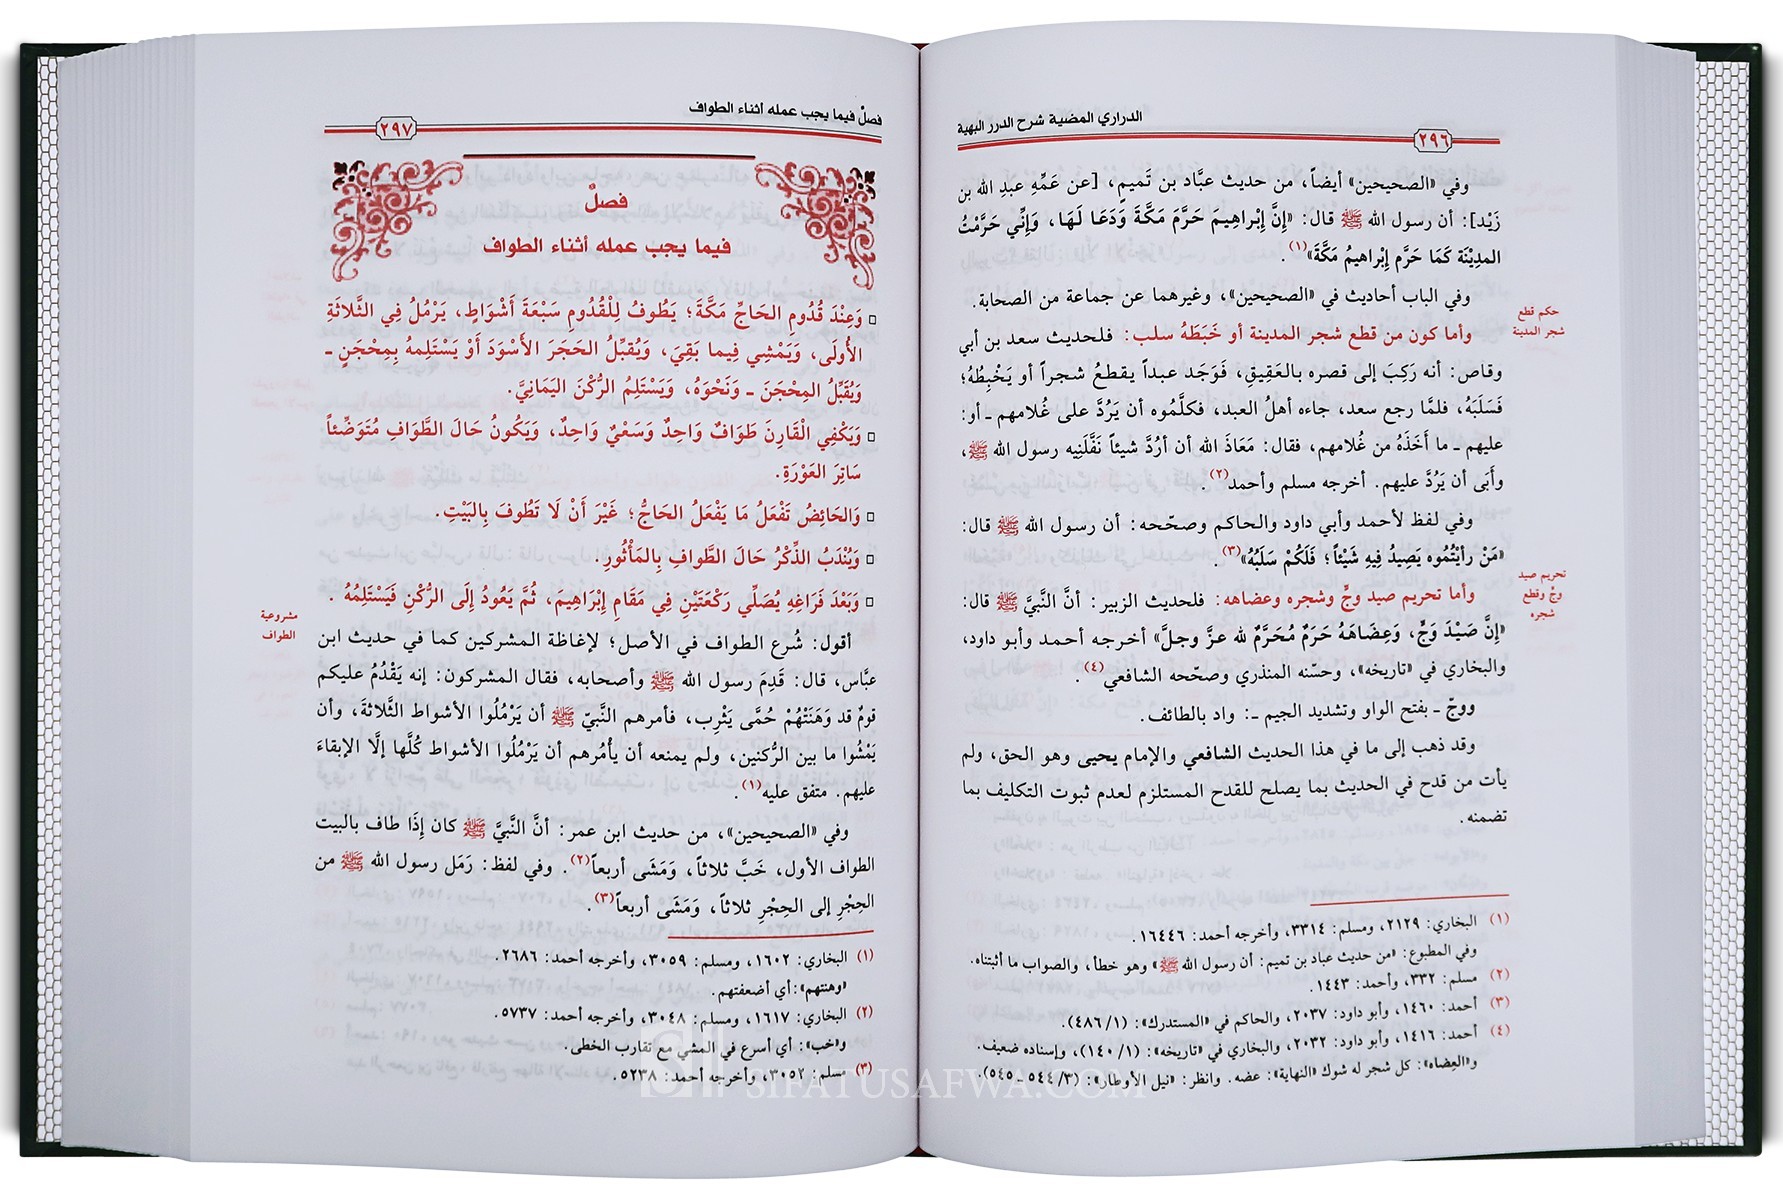 الدراري المضية شرح الدرر البهية
٢٩٦
وفي «الصحيحين» أيضاً، من حديث عبَّاد بن تَميمٍ، [عن عَمِّهِ عبدِ الله بن
زَيْد]: أن رسول الله ﷺ قال: «إِنَّ إِبْراهِيمَ حَرَّمَ مَكَّةَ وَدَعَا لَهَا، وَإِنِّي حَرَّمْتُ
المدِيْنَة كَمَا حَرَّم إِبْراهيمُ مَكَّةَ»(١).
وفي الباب أحاديث في «الصحيحين»، وغيرهما عن جماعة من الصحابة.
حكم قطع
شجر المدينة
وأما كون من قطع شجر المدينة أو خَبَطَهُ سلب: فلحديث سعد بن أبي
وقاص: أنه رَكِبَ إلى قصره بالعَقِيقِ، فَوَجَد عبداً يقطعُ شجراً أو يَخْبِطُه؛
فَسَلَبَهُ، فلمَّا رجع سعد، جاءه أهلُ العبد، فكلَّمُوه أن يَرُدَّ على غُلامهم ـ أو:
عليهم ـ ما أَخَذَهُ من غُلامهم، فقال: مَعَاذَ الله أن أرُدَّ شيئاً نَفَّلَنِيه رسول الله ﷺ،
وَأَبَى أن يَرُدَّ عليهم. أخرجه مسلم وأحمد(٢).
وفي لفظ لأحمد وأبي داود والحاكم وصحّحه: أن رسول الله ﷺ قال:
«مَنْ رأيْتُمُوه يَصِيدُ فِيهِ شَيْئاً؛ فَلَكُمْ سَلَبُهُ»(٣).
تحريم صيد
وجٍّ وقطع
شجره
وأما تحريم صيد وجٍّ وشجره وعضاهه: فلحديث الزبير: أنَّ النَّبيَّ ﷺ قال:
«إِنَّ صَيْدَ وَجٍّ، وَعِضَاهَهُ حَرَمٌ مُحَرَّمٌ لله عزَّ وجلَّ» أخرجه أحمد وأبو داود،
والبخاري في «تاريخه»، وحسّنه المنذري وصحّحه الشافعي(٤).
ووجّ ـ بفتح الواو وتشديد الجيم ـ: واد بالطائف.
وقد ذهب إلى ما في هذا الحديث الشافعي والإمام يحيى وهو الحق، ولم
يأت من قدح في الحديث بما يصلح للقدح المستلزم لعدم ثبوت التكليف بما
تضمنه.
(١) البخاري: ٢١٢٩، ومسلم: ٣٣١٤، وأخرجه أحمد: ١٦٤٤٦.
وفي المطبوع: «من حديث عباد بن تميم: أن رسول الله ﷺ» وهو خطأ، والصواب ما أثبتناه.
(٢) مسلم: ٣٣٢، وأحمد: ١٤٤٣.
(٣) أحمد: ١٤٦٠، وأبو داود: ٢٠٣٧، والحاكم في «المستدرك»: (١/ ٤٨٦).
(٤) أحمد: ١٤١٦، وأبو داود: ٢٠٣٢، والبخاري في «تاريخه»: (١/ ١٤٠)، وإسناده ضعيف.
و«العِضاه»: كل شجر له شوك «النهاية»: عضه. وانظر: «نيل الأوطار»: (٣/ ٥٤٤ ـ ٥٤٥).
فصلٌ فيما يجب عمله أثناء الطواف
٢٩٧
فصلٌ
فيما يجب عمله أثناء الطواف
□ وَعِنْدَ قُدُومِ الحَاجِّ مَكَّةَ؛ يَطُوفُ لِلْقُدُومِ سَبْعَةَ أَشْوَاطٍ، يَرْمُلُ فِي الثَّلاثَةِ
الأُولَى، وَيَمْشِي فِيما بَقِيَ، وَيُقبِّلُ الحَجَرَ الأَسْوَدَ أَوْ يَسْتَلِمهُ بِمِحْجَنٍ ـ
وَيُقَبِّلُ المِحْجَنَ ـ وَنَحْوَهُ، وَيَسْتَلِمُ الرُّكْنَ اليَمَانِيَّ.
□ وَيَكْفِي الْقَارِنَ طَوَافٌ وَاحِدٌ وَسَعْيٌ وَاحِدٌ، وَيَكُونُ حَالَ الطَّوَافِ مُتَوَضِّئاً
سَاتِرَ العَوْرَةِ.
□ وَالحَائِضُ تَفْعَلُ مَا يَفْعَلُ الحَاجُّ؛ غَيْرَ أَنْ لَا تَطُوفَ بِالبَيْتِ.
□ وَيُنْدَبُ الذِّكْرُ حَالَ الطَّوافِ بِالمَأْثُورِ.
□ وَبَعْدَ فَرَاغِهِ يُصَلِّي رَكْعَتَيْنِ فِي مَقَامِ إِبْرَاهِيمَ، ثُمَّ يَعُودُ إِلَى الرُّكْنِ فَيَسْتَلِمُهُ.
مشروعية
الطواف
أقول: شُرع الطواف في الأصل؛ لإغاظة المشركين كما في حديث ابن
عبَّاس، قال: قَدِمَ رسول الله ﷺ وأصحابه، فقال المشركون: إنه يَقْدُمُ عليكم
قومٌ قد وَهَنَتْهُمْ حُمَّى يَثْرِب، فأمرهم النَّبيّ ﷺ أن يَرْمُلُوا الأشواط الثَّلاثَةَ، وأن
يَمْشُوا ما بين الرُّكنين، ولم يمنعه أن يأْمُرهم أن يَرْمُلُوا الأشواط كُلَّها إلَّا الإبقاءَ
عليهم. متفق عليه(١).
وفي «الصحيحين»، من حديث ابن عمر: أنَّ النَّبيَّ ﷺ كان إِذَا طاف بالبيت
الطواف الأول، خَبَّ ثلاثاً، وَمَشَى أربعاً(٢). وفي لفظ: رَمَل رسول الله ﷺ من
الحِجْرِ إلى الحِجْرِ ثلاثاً، وَمَشَى أربعاً(٣).
(١) البخاري: ١٦٠٢، ومسلم: ٣٠٥٩، وأخرجه أحمد: ٢٦٨٦.
«وهنتهم»: أي أضعفتهم.
(٢) البخاري: ١٦١٧، ومسلم: ٣٠٤٨، وأخرجه أحمد: ٥٧٣٧.
و«خب»: أي أسرع في المشي مع تقارب الخطى.
(٣) مسلم: ٣٠٥٢، وأخرجه أحمد: ٥٢٣٨.
SIFATUSAFWA.COM